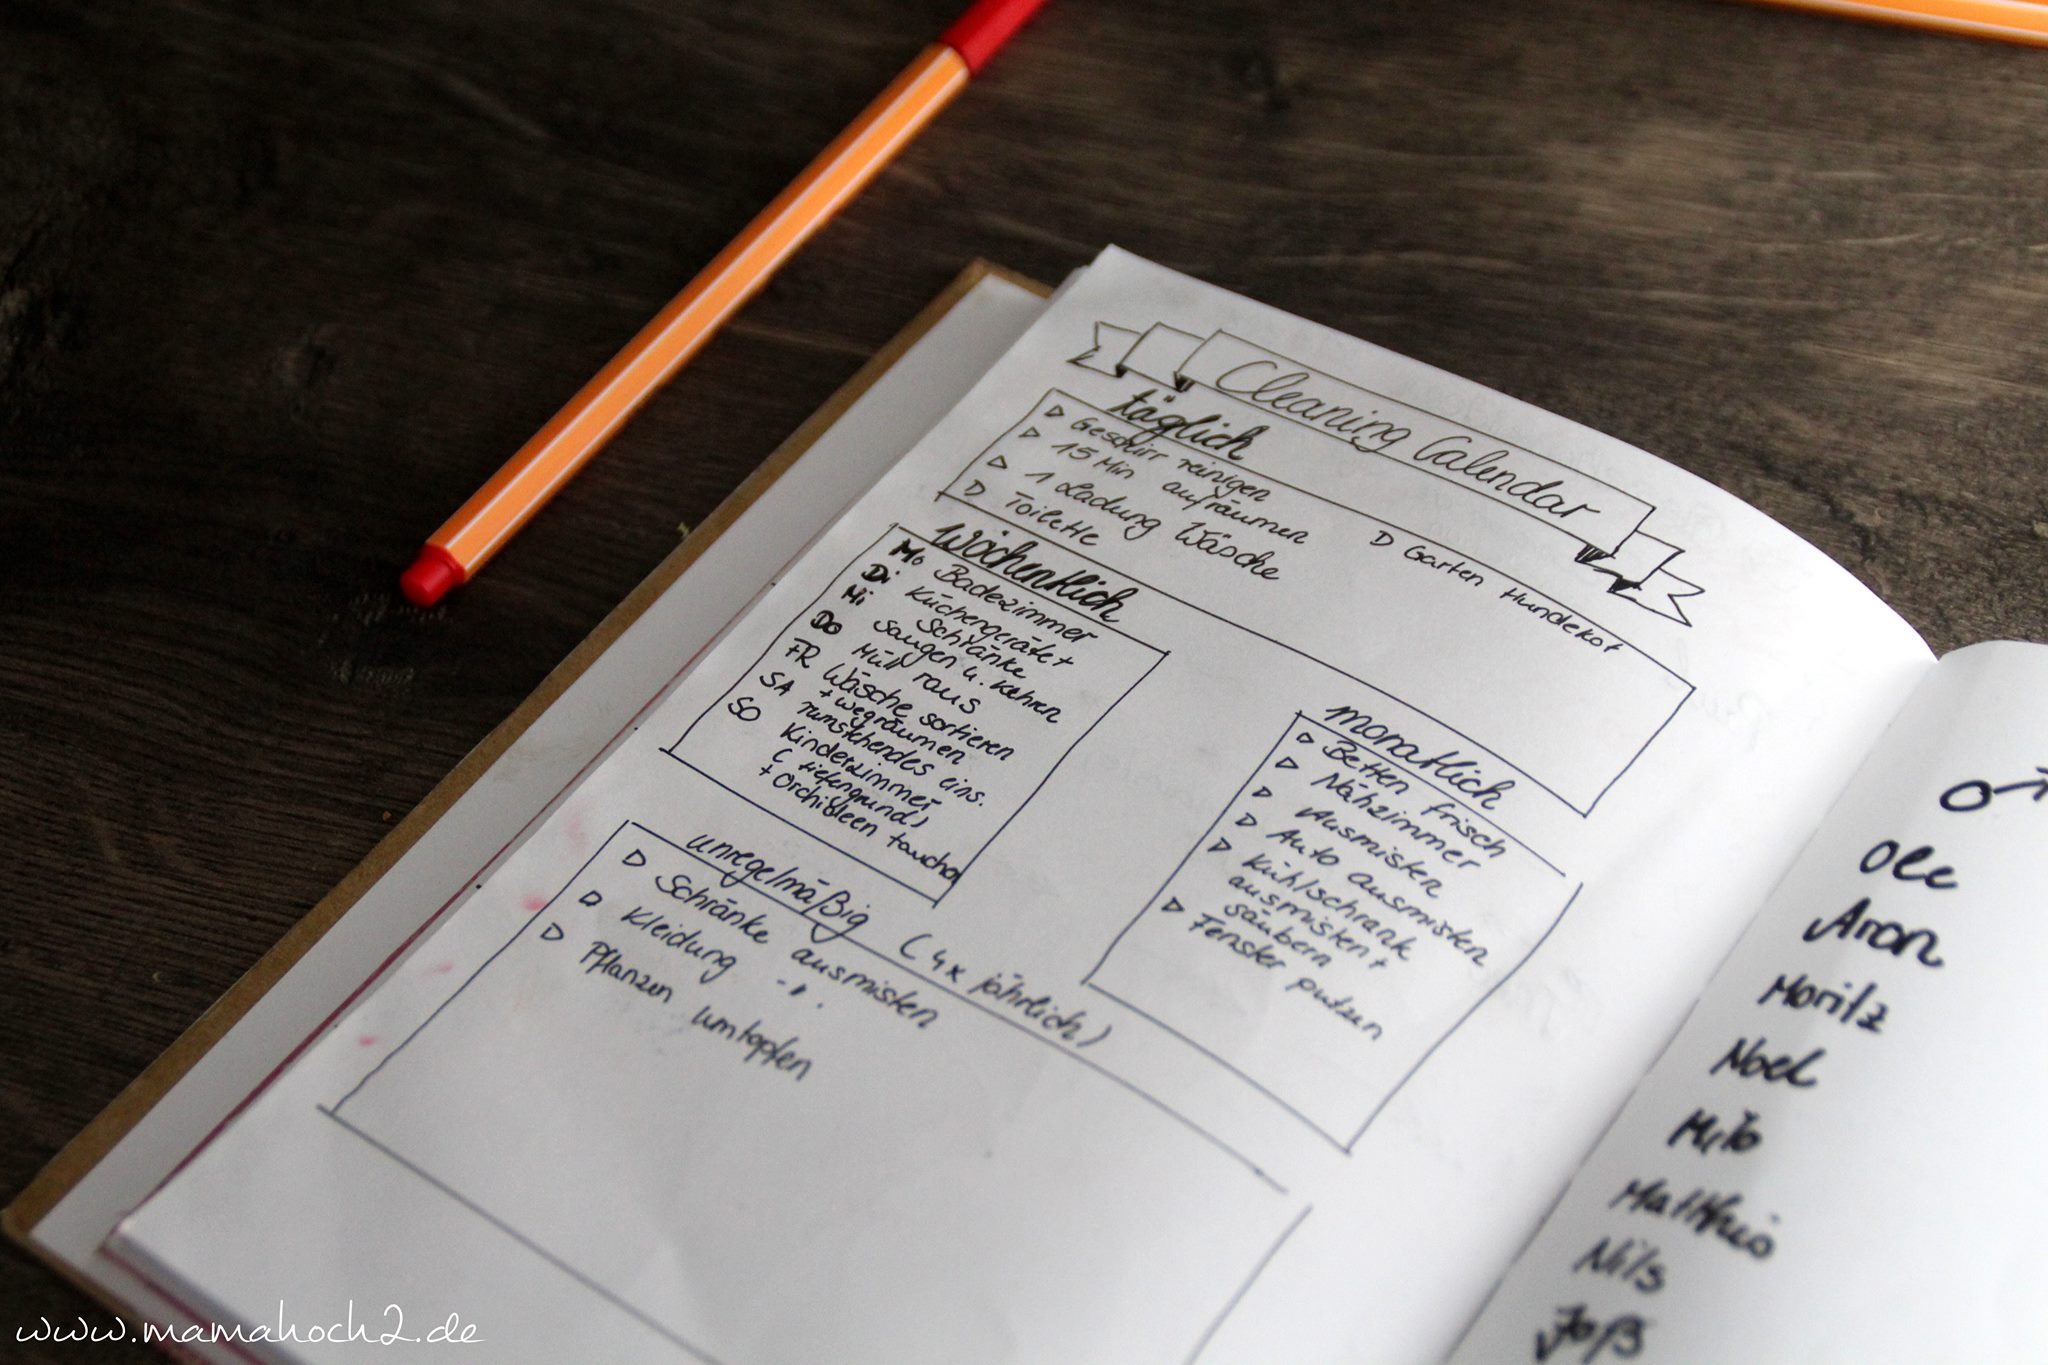 Cleaning Calendar
täglich
▷ Geschirr reinigen
▷ 15 Min aufräumen
▷ 1 Ladung Wäsche
▷ Toilette
▷ Garten Hundekot
wöchentlich
Mo Badezimmer
Di Küchengeräte +
Schränke
Mi saugen u. kehren
Do Müll raus
FR Wäsche sortieren
+ wegräumen
SA rumstehendes eins.
SO Kinderzimmer
(tiefengrund)
+ Orchideen
monatlich
▷ Betten frisch
▷ Nähzimmer
▷ Ausmisten
▷ Auto ausmisten
▷ Kühlschrank
ausmisten +
säubern
▷ Fenster putzen
unregelmäßig (4x jährlich)
▷ Schränke ausmisten
▷ Kleidung -"-
▷ Pflanzen umtopfen
♂
Ole
Aron
Moritz
Noel
Milo
Matthis
Nils
Joß
www.mamahoch2.de